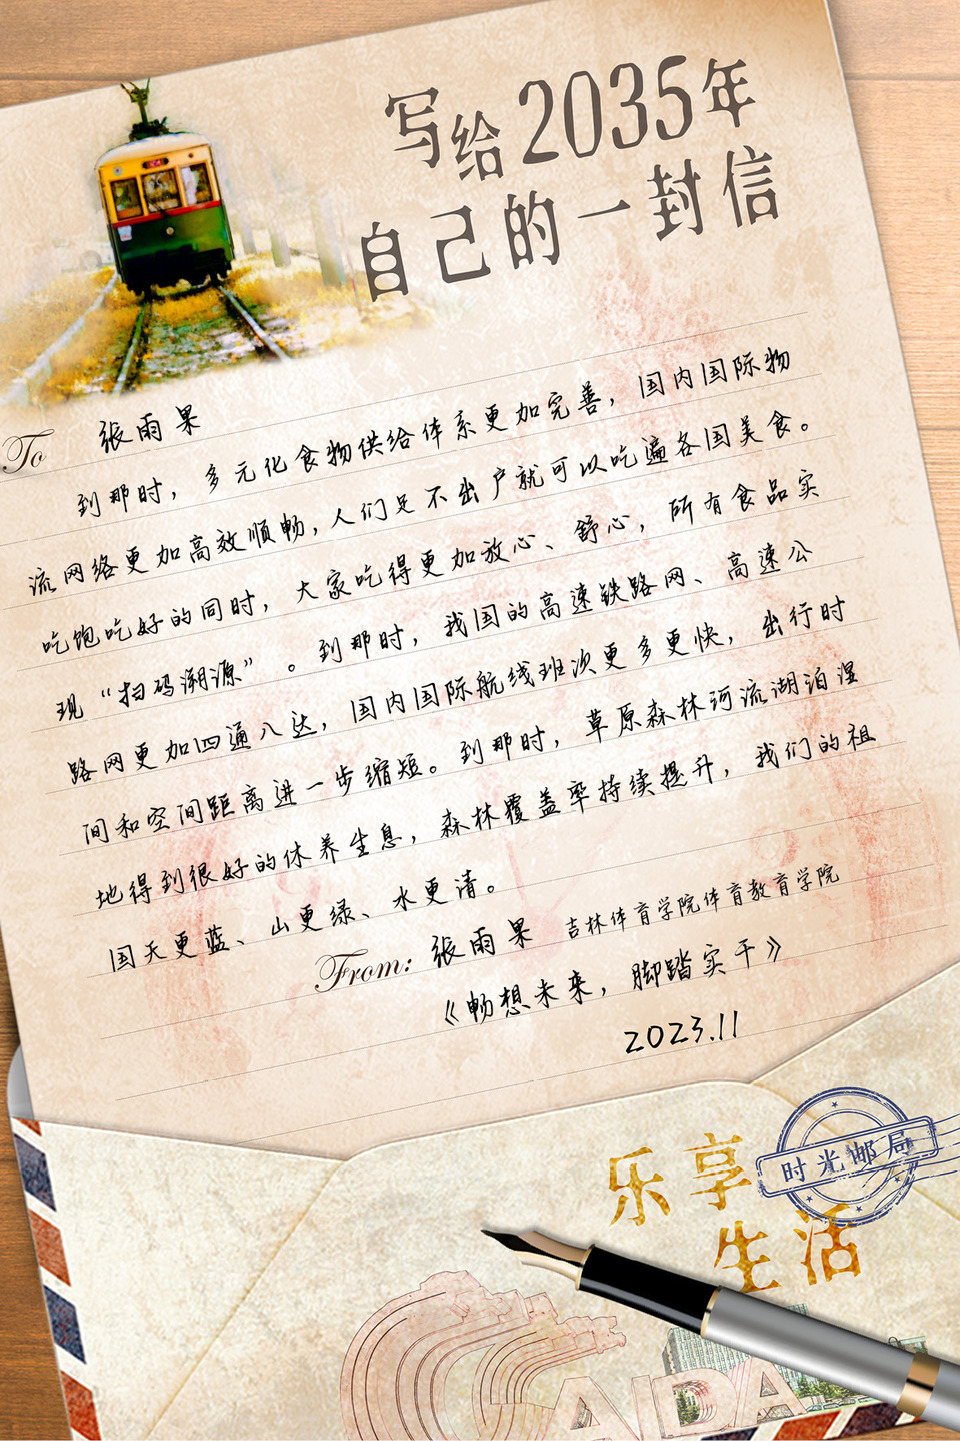 写给2035年
自己的一封信
To 张雨果
到那时，多元化食物供给体系更加完善，国内国际物
流网络更加高效顺畅，人们足不出户就可以吃遍各国美食。
吃饱吃好的同时，大家吃得更加放心、舒心，所有食品实
现“扫码溯源”。到那时，我国的高速铁路网、高速公
路网更加四通八达，国内国际航线班次更多更快，出行时
间和空间距离进一步缩短。到那时，草原森林河流湖泊湿
地得到很好的休养生息，森林覆盖率持续提升，我们的祖
国天更蓝、山更绿、水更清。
From: 张雨果 吉林体育学院体育教育学院
《畅想未来，脚踏实干》
2023.11
时光邮局
乐享
生活
CAIDA